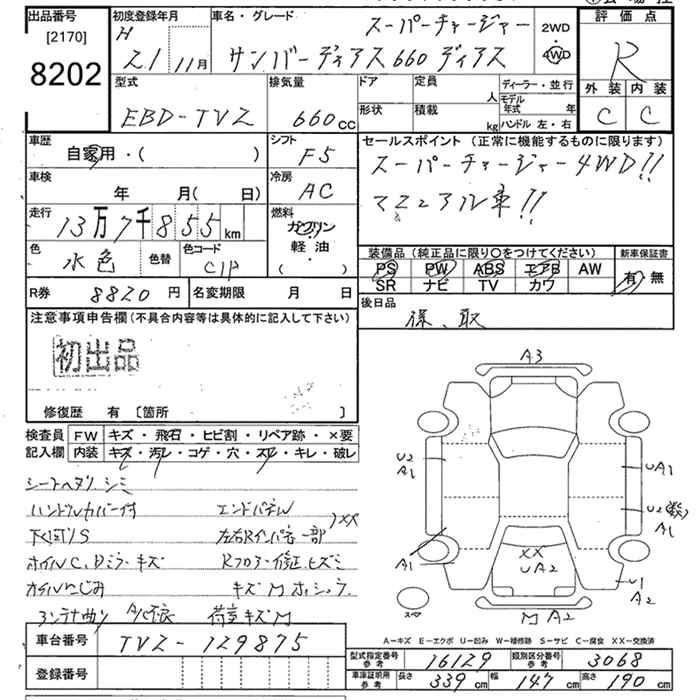 出品番号
[2170]
8202
初度登録年月
H
21 11月
車名・グレード
スーパーチャージャー
サンバーディアス660 ディアス
2WD
4WD
評価点
R
外装 内装
C C
型式
EBD-TVZ
排気量
660cc
ドア
形状
定員
人
積載
kg
ディーラー・並行
モデル年式 年
ハンドル 左・右
車歴
自家用・( )
シフト
F5
車検
年 月( 日)
冷房
AC
走行
13万7千855km
燃料
ガソリン
軽・油
( )
色
水色
色替
色コード
C1P
R券
8820円
名変期限 月 日
セールスポイント (正常に機能するものに限ります)
スーパーチャージャー4WD!!
マニュアル車!!
装備品 (純正品に限り○をつけてください)
PS PW ABS エアB AW
SR ナビ TV カワ
新車保証書
有 無
後日品
保、取
注意事項申告欄 (不具合内容等は具体的に記入して下さい)
初出品
修復歴 有 〔箇所 〕
検査員記入欄
FW キズ・飛石・ヒビ割・リペア跡・×要
内装 キズ・汚レ・コゲ・穴・スレ・キレ・破レ
シートヘタリ シミ
ハンドルカバー付 エンドパネル
XX
下廻りS 左右Rインパネ一部
ホイルC、Dミラーキズ Rフロアー修正、ヒズミ
オイルにじみ キズM
アンテナ曲り A/C不良 荷室キズM
A3
U2
A1
UA1
U2
A1
A1
XX
UA2
U1
A2
スペア
M A2
A－キズ E－エクボ U－凹み W－補修跡 S－サビ C－腐食 XX－交換済
車台番号
TVZ-129875
登録番号
型式指定番号 参考 16129
類別区分番号 参考 3068
車庫証明用 参考 長さ 339cm 幅 147cm 高さ 190cm